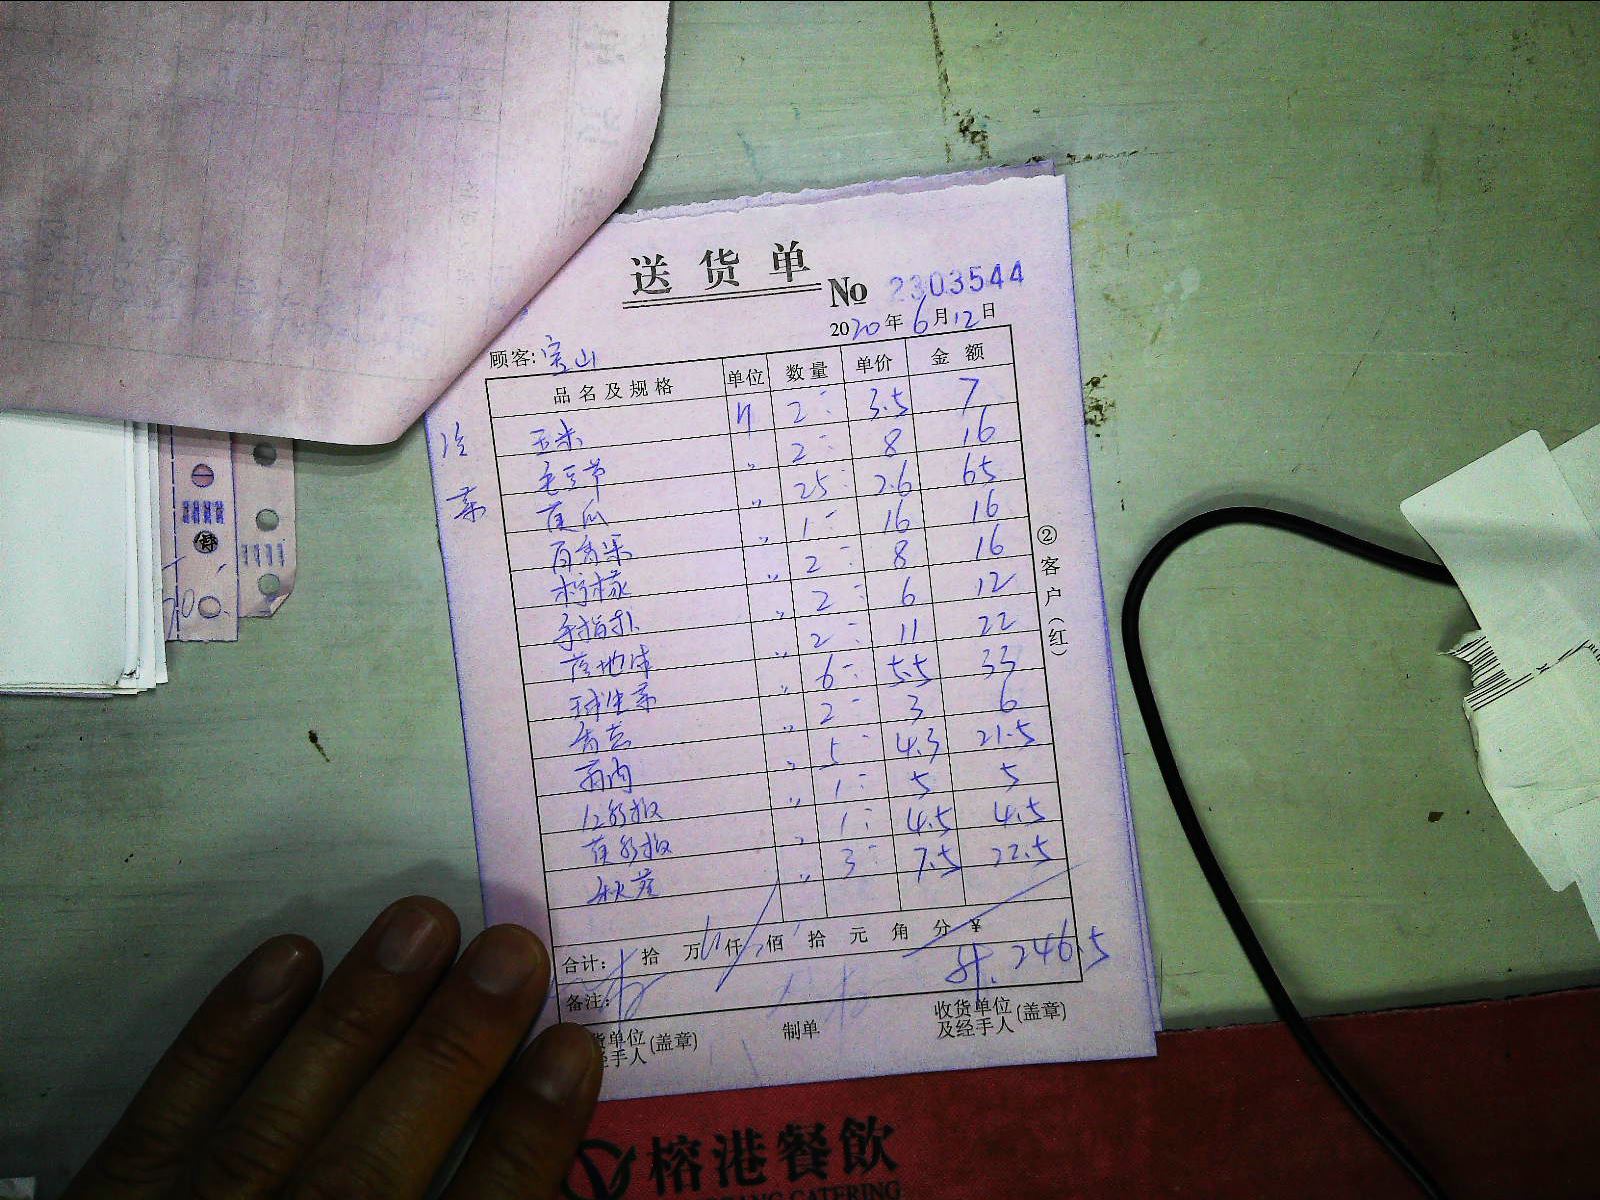 送货单
No 2303544
2020年6月12日
顾客: 宝山
品名及规格 单位 数量 单价 金额
冷菜
玉米 斤 2 3.5 7
毛豆节 〃 2 8 16
黄瓜 〃 25 2.6 65
百香果 〃 1 16 16
柠檬 〃 2 8 16
手指扑 〃 2 6 12
落地球 〃 2 11 22
球生菜 〃 6 5.5 33
香芒 〃 2 3 6
〃 5 4.3 21.5
红彩椒 〃 1 5 5
黄彩椒 〃 1 4.5 4.5
秋葵 〃 3 7.5 22.5
合计: 拾 万 仟 佰 拾 元 角 分 ¥
计. 246.5
备注:
货单位
经手人 (盖章)
制单
收货单位
及经手人 (盖章)
②客户(红)
榕港餐飲
CATERING